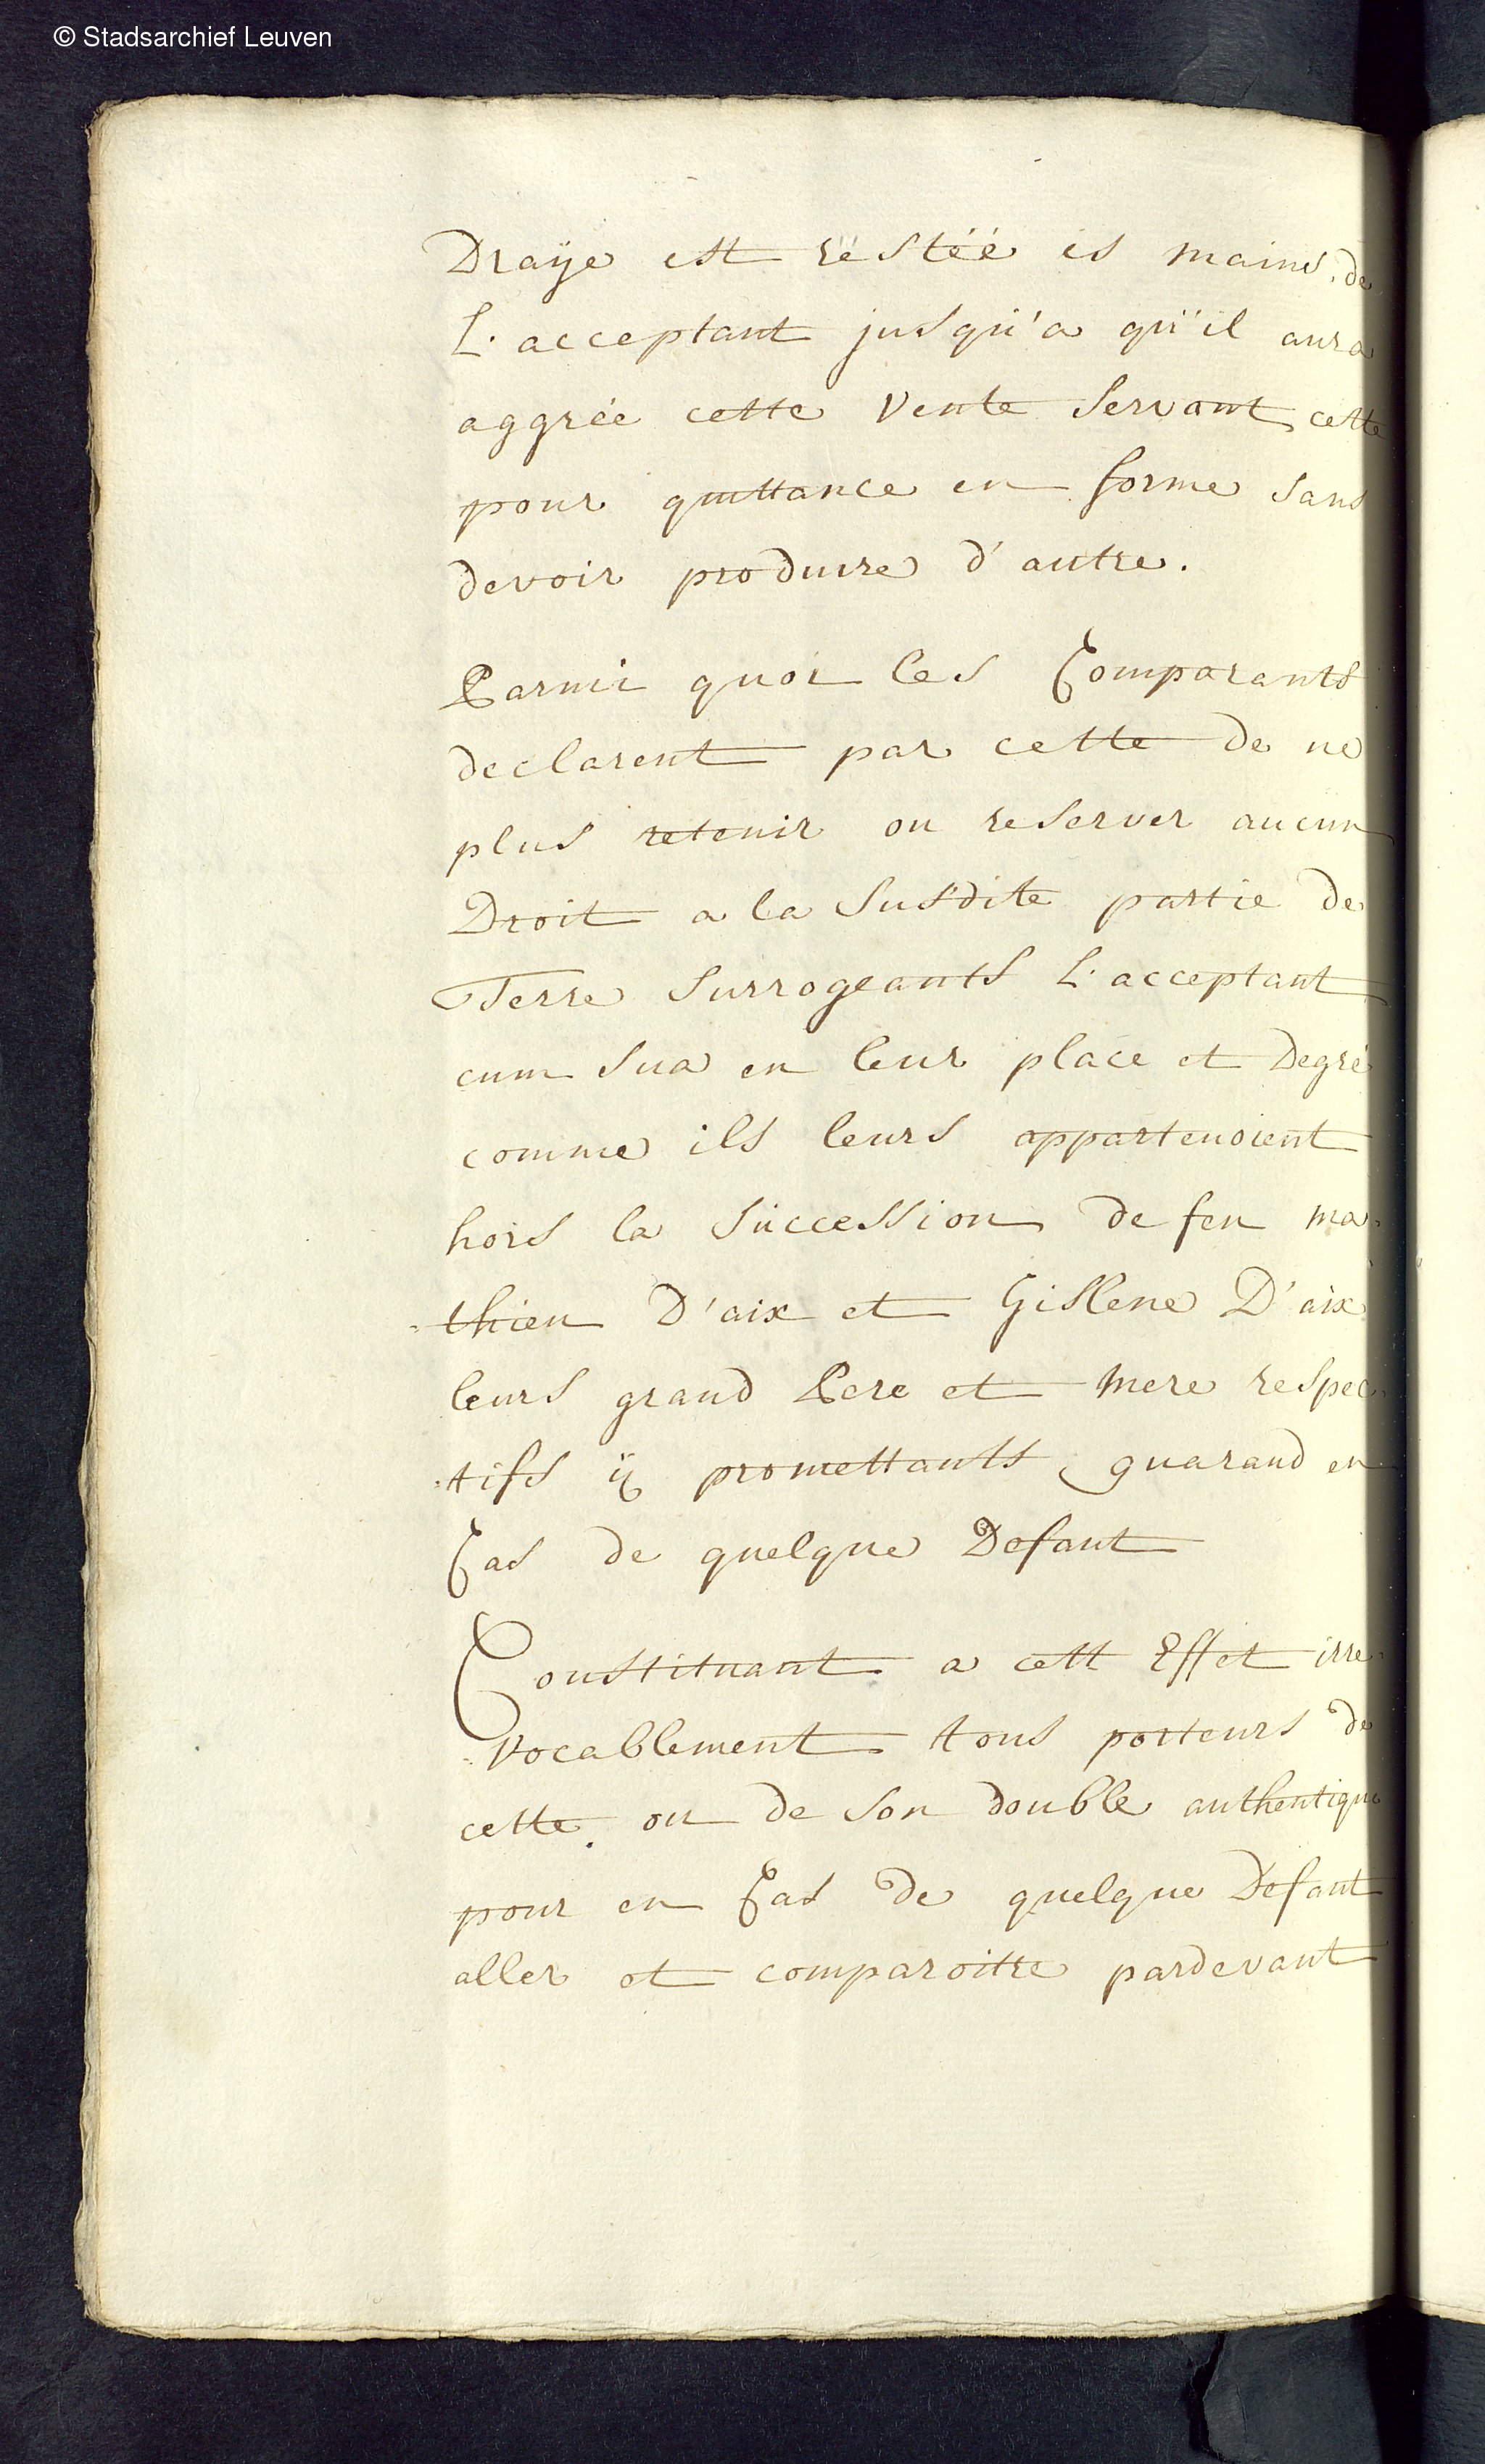 © Stadsarchief Leuven
Draÿe est rëstéé es mains de
L'acceptant jusqu'a qu'il aura
aggrée cette Vente Servant cette
pour quittance en forme sans
devoir produire d'autre.
Parmi quoi les Comparants
declarent par cette de ne
plus retenir ou reserver aucun
Droit a la Susdite partie de
Terre Surrogeants L'acceptant
cum Sua en leur place et Degré
comme ils leurs appartenoient
hors la Succession de feu ma-
-thieu D'aix et Gislene D'aix
leurs grand Pere et mere respec-
-tifs ÿ promettants guarand en
Cas de quelque Defaut
Constituant a cett Effet irre-
-vocablement tous porteurs de
cette ou de Son double authentique
pour en Cas de quelque Defaut
aller et comparoitre pardevant